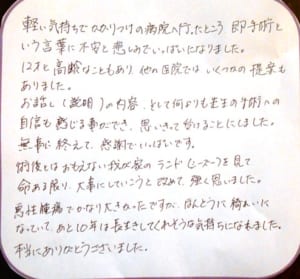 軽い気持ちでかかりつけの病院へ行ったところ 即手術と
いう言葉に不安と悲しみでいっぱいになりました。
12才と高齢なこともあり、他の医院ではいくつかの提案も
ありました。
お話し(説明)の内容、そして何よりも先生の手術への
自信も感じる事ができ、思いきって受けることにしました。
無事に終えて、感謝でいっぱいです。
術後とはおもえない我が家のランド(シーズー)を見て
命ある限り、大事にしていこうと改めて、強く思いました。
悪性腫瘍でかなり大きかったですが、ほんとうに綺れいに
なっていて、あと10年は長生きしてくれそうな気持ちになれました。
本当にありがとうございました。